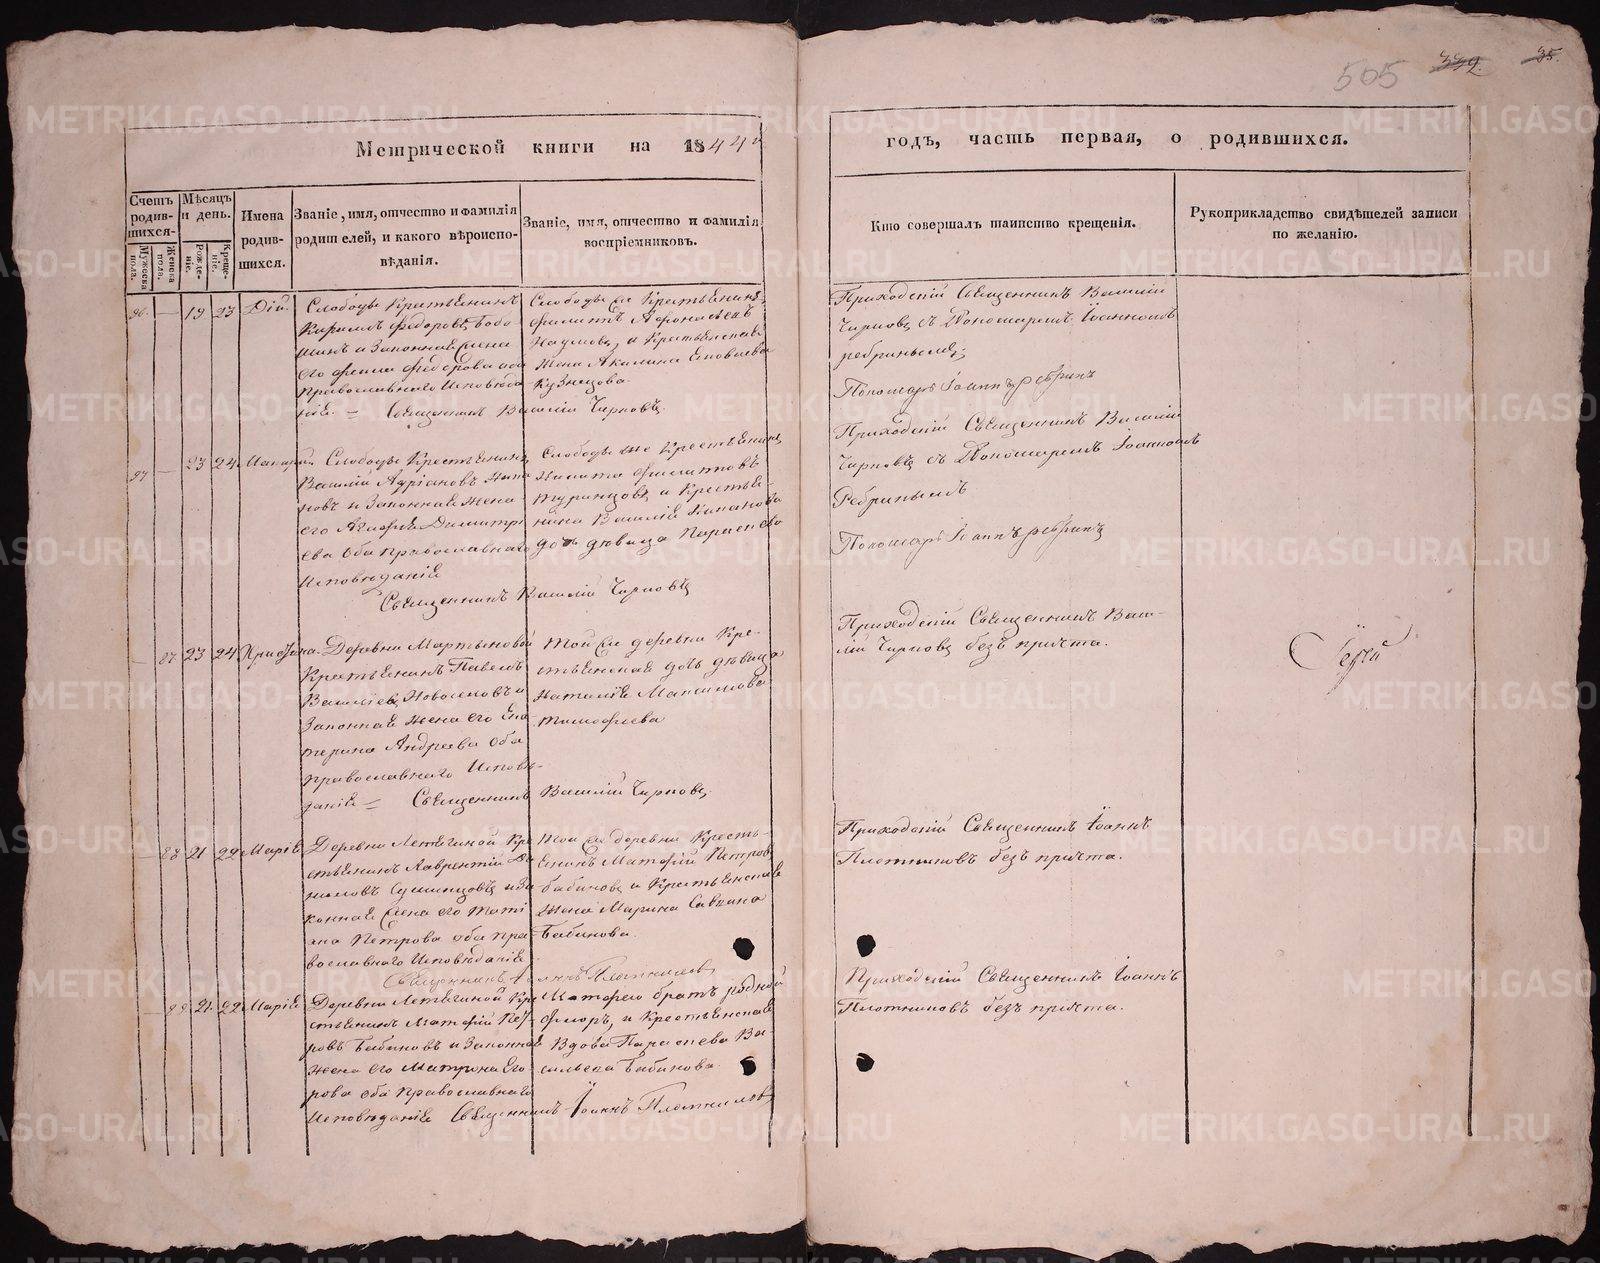 505 332. 35.
Метрической книги на 1844й
годъ, часть первая, о родившихся.
Счетъ родив-шихся.
Мужеска пола.
Женска пола.
Мѣсяцъ и день.
Рожде-ніе.
Креще-ніе.
Имена родив-шихся.
Званіе, имя, отчество и фамилія
родителей, и какого вѣроиспо-
вѣданія.
Званіе, имя, отчество и фамилія
воспріемниковъ.
Кто совершалъ таинство крещенія.
Рукоприкладство свидѣтелей записи
по желанію.
— 19 23 Дій.
Слободы Крестьянинъ
Кирилъ Федоровъ
и Законная Жена
его Федорова оба
Православнаго Исповѣда
нія. = Священникъ Василій Чирковъ.
Слободы Крестьянинъ
Филиппъ Афонасьевъ
Наумовъ, и Крестьянская
Жена Акилина
Кузнецова.
Приходскій Священникъ Василій
Чирковъ съ Пономаремъ Іоанномъ
Ребринымъ;
Пономарь Іоаннъ Ребринъ
97 — 23 24 Макарій.
Слободы Крестьянинъ
Василій Адріановъ
новъ и Законная Жена
его Агафья Димитрі
ева Оба Православнаго
Исповѣданія
Священникъ Василій Чирковъ
Слободы же Крестьянинъ
Никита Филиповъ
и Крестья-
нина Василія
дочь дѣвица Параскева
Приходскій Священникъ Василій
Чирковъ съ Пономаремъ Іоанномъ
Ребринымъ
Пономарь Іоаннъ Ребринъ
— 87 23 24 Христина.
Деревни Мартыновой
Крестьянинъ Павелъ
Васильевъ Новоселовъ и
Законная Жена его Ека
терина Андреева Оба
Православнаго Исповѣ-
данія = Священникъ Василій Чирковъ
Той же деревни Кре-
стьянская дочь дѣвица
Наталія Максимова
Тимофеева
Приходскій Священникъ Васи-
лій Чирковъ безъ причта.
— 88 21 22 Марія
Деревни Летягиной Кре
стьянинъ Лаврентій Да
ниловъ и За
конная Жена его Тати
яна Петрова оба Пра
вославнаго Исповѣданія
Священникъ Іоаннъ Плотниковъ
Той же деревни Кресть-
янинъ Матфей Петровъ
Бабиновъ и Крестьянская
Жена Марина Саввина
Бабинова.
Приходскій Священникъ Іоаннъ
Плотниковъ безъ причта.
— 89 21. 22 Марія
Деревни Летягиной Кре
стьянинъ Матфей Пет-
ровъ Бабиновъ и Законная
Жена его Матрона Его
рова оба Православнаго
Исповѣданія Священникъ Іоаннъ Плотниковъ
Матфею братъ родной
Флоръ, и Крестьянская
Вдова Параскева Ва-
сильева Бабинова.
Приходскій Священникъ Іоаннъ
Плотниковъ безъ причта.
METRIKI.GASO-URAL.RU